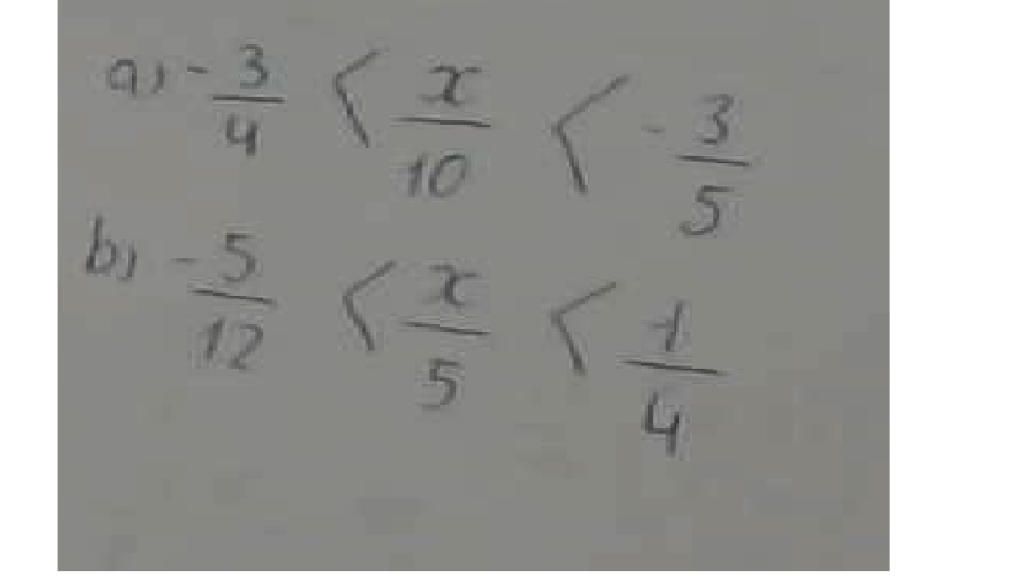 a) -3/4 < x/10 < -3/5
b) -5/12 < x/5 < 1/4